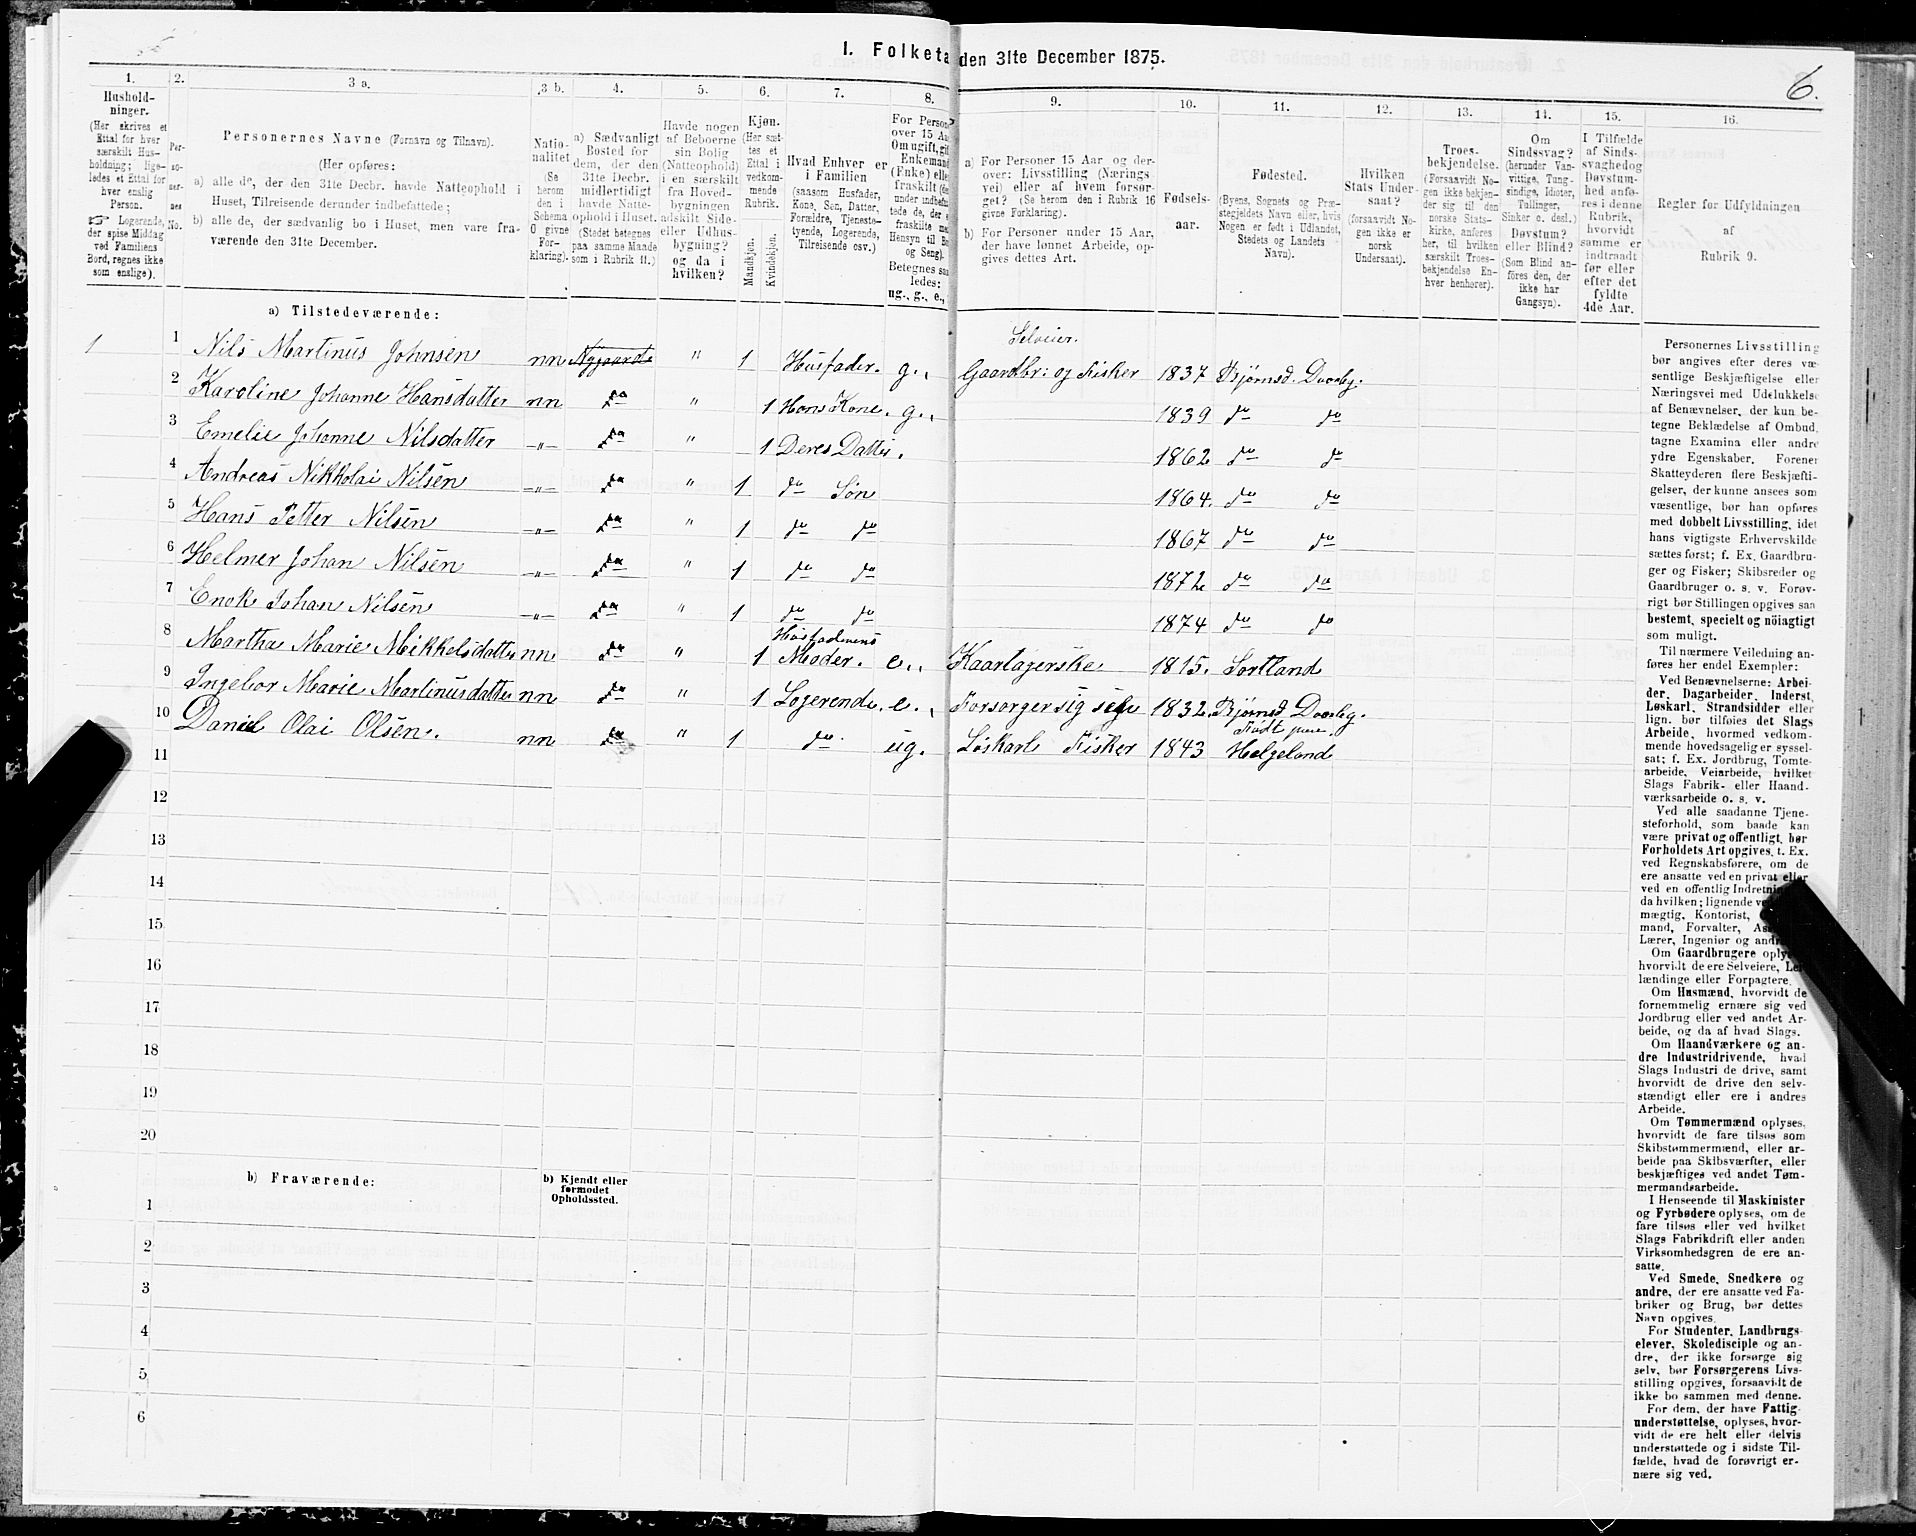 I. Folketa den 31te December 1875.
6.
1.
Hushold-
ninger.
(Her skrives et
Ettal for hver
særskilt Hus-
holdning; lige-
ledes et Ettal for
hver enslig
Person.
Logerende,
der spise Middag
ved Familiens
Bord, regnes ikke
som enslige).
2.
Per-
so-
ner-
nes
No.
3 a.
Personernes Navne (Fornavn og Tilnavn).
(Her opføres:
a) alle de, der den 31te Decbr. havde Natteophold i
Huset, Tilreisende derunder indbefattede;
b) alle de, der sædvanlig bo i Huset, men vare fra-
værende den 31te December.
3 b.
Natio-
nalitet
(Se
herom
den i
Schema
O givne
For-
klaring).
4.
a) Sædvanligt
Bosted for
dem, der den
31te Decbr.
midlertidigt
havde Natte-
ophold i Huset.
(Stedet betegnes
paa samme Maade
som i Rubrik 11.)
5.
Havde nogen
af Beboerne
sin Bolig
(Natteophold)
i en særskilt
fra Hoved-
bygningen
adskilt Side-
eller Udhus-
bygning?
og da i
hvilken?
6.
Kjøn.
(Her sæt-
tes et
Ettal i
vedkom-
mende
Rubrik.
Mandkjøn.
Kvindekjøn.
7.
Hvad Enhver er
i Familien
(saasom Husfader,
Kone, Søn, Datter,
Forældre, Tjeneste-
tyende, Logerende,
Tilreisende osv.)
8.
For Person
over 15 Aa
Om ugift, gif
Enkemand
(Enke) elle
fraskilt
under indbefat
tede de, der e
fraskilte me
Hensyn til Bo
og Seng).
Betegnes saa
ledes:
ug., g., e.,
9.
a) For Personer 15 Aar og der-
over: Livsstilling (Nærings-
vei) eller af hvem forsør-
get? (Se herom den i Rubrik 16
givne Forklaring).
b) For Personer under 15 Aar,
der have lønnet Arbeide, op-
gives dettes Art.
10.
Fødsels-
aar.
11.
Fødested.
(Byens, Sognets og Præ-
stegjeldets Navn eller, hvis
Nogen er født i Udlandet,
Stedets og Landets
Navn).
12.
Hvilken
Stats Under-
saat?
(forsaavidt No-
gen ikke er
norsk
Undersaat).
13.
Troes-
bekjendelse.
(Forsaavidt No-
gen ikke bekjen-
der sig til den
norske Stats-
kirke, anføres
her, til hvilken
særskilt Troes-
bekjendelse En-
hver henhører).
14.
Om
Sindssvag?
(herunder Van-
vittige, Tung-
sindige, Idioter,
Tullinger,
Sinker o. desl.)
Døvstum?
eller Blind?
(Som Blind an-
føres den, der
ikke har
Gangsyn).
15.
I Tilfælde
af Sinds-
svaghed og
Døvstum-
hed anfø-
res i denne
Rubrik,
hvorvidt
samme er
indtraadt
før eller
efter det
fyldte
4de Aar.
16.
Regler for Udfyldningen
af
Rubrik 9.
a) Tilstedeværende:
Selveier.
1 1 Nils Martinus Johnsen nn Nygaard " 1 Husfader. g., Gaardbr: og Fisker 1837 Bjørnsd. Dverbg.
2 Karoline Johanne Hansdatter nn do " 1 Hans Kone. g., 1839 do do
3 Emelie Johanne Nilsdatter -"- do " 1 Deres Datter. 1862 do do
4 Andreas Nikkolai Nilsen -"- do " 1 do Søn 1864. do do
5 Hans Petter Nilsen -"- do " 1 do do 1867 do do
6 Helmer Johan Nilsen -"- do " 1 do do 1872 do do
7 Enok Johan Nilsen -"- do " 1 do do 1874 do do
Husfaderens
8 Martha Marie Mikkelsdatter nn do " 1 Moder. e., Kaartagerske 1815. Sortland
9 Ingebor Marie Martinusdatter nn do " 1 Logerende. e., Forsørger sig selv 1832. Bjørnsd Dverbg.
Født paa
10 Daniel Olai Olsen. nn do " 1 do ug. Løskarl Fisker 1843 Helgeland
11
12
13
14
15
16
17
18
19
20
b) Fraværende:
b) Kjendt eller
formodet
Opholdssted.
1
2
3
4
5
6
Personernes Livsstilling
bør angives efter deres væ-
sentlige Beskjæftigelse eller
Næringsvei med Udelukkelse
af Benævnelser, der kun be-
tegne Beklædelse af Ombud,
tagne Examina eller andre
ydre Egenskaber. Forener
Skatteyderen flere Beskjæfti-
gelser, der kunne ansees som
væsentlige, bør han opføres
med dobbelt Livsstilling, idet
hans vigtigste Erhvervskilde
sættes først; f. Ex. Gaardbru-
ger og Fisker; Skibsreder og
Gaardbruger o. s. v. Forøv-
rigt bør Stillingen opgives saa
bestemt, specielt og nöiagtigt
som muligt.
Til nærmere Veiledning an-
føres her endel Exempler:
Ved Benævnelserne: Arbei-
der, Dagarbeider, Inderst,
Løskarl, Strandsidder eller
lign. bør tilføies det Slags
Arbeide, hvormed vedkom-
mende hovedsagelig er syssel-
sat; f. Ex. Jordbrug, Tomte-
arbeide, Veiarbeide, hvilket
Slags Fabrik- eller Haand-
værksarbeide o. s. v.
Ved alle saadanne Tjene-
steforhold, som baade kan
være privat og offentligt, bør
Forholdets Art opgives, t. Ex.
ved Regnskabsførere, om de
ere ansatte ved en privat eller
ved en offentlig Indretnin
da hvilken; lignende ve
mægtig, Kontorist,
mand, Forvalter, Ass
Lærer, Ingeniør og andr
Om Gaardbrugere oply
hvorvidt de ere Selveiere, Lei
lændinge eller Forpagtere.
Om Husmænd, hvorvidt de
fornemmelig ernære sig ved
Jordbrug eller ved andet Ar-
beide, og da af hvad Slags.
Om Haandværkere og an-
dre Industridrivende, hvad
Slags Industri de drive, samt
hvorvidt de drive den selv-
stændigt eller ere i andres
Arbeide.
Om Tømmermænd oplyses,
hvorvidt de fare tilsøs som
Skibstømmermænd, eller ar-
beide paa Skibsværfter, eller
beskjæftiges ved andet Tøm-
mermandsarbeide.
I Henseende til Maskinister
og Fyrbødere oplyses, om de
fare tilsøs eller ved hvilket
Slags Fabrikdrift eller anden
Virksomhedsgren de ere an-
satte.
Ved Smede, Snedkere og
andre, der ere ansatte ved Fa-
briker og Brug, bør dettes
Navn opgives.
For Studenter, Landbrugs-
elever, Skoledisciple og an-
dre, der ikke forsørge sig
selv, bør Forsørgerens Livs-
stilling opgives, forsaavidt de
ikke bo sammen med denne.
For dem, der have Fattig-
understøttelse, oplyses, hvor-
vidt de ere helt eller delvis
understøttede og i sidste Til-
fælde, hvad de forøvrigt er-
nære sig ved.